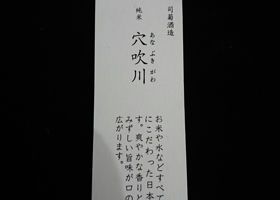 司菊酒造
純米
あなぶきがわ
穴吹川
お米や水などすべて
にこだわった日本
す。爽やかな香りと
みずしい旨味が口の
広がります。